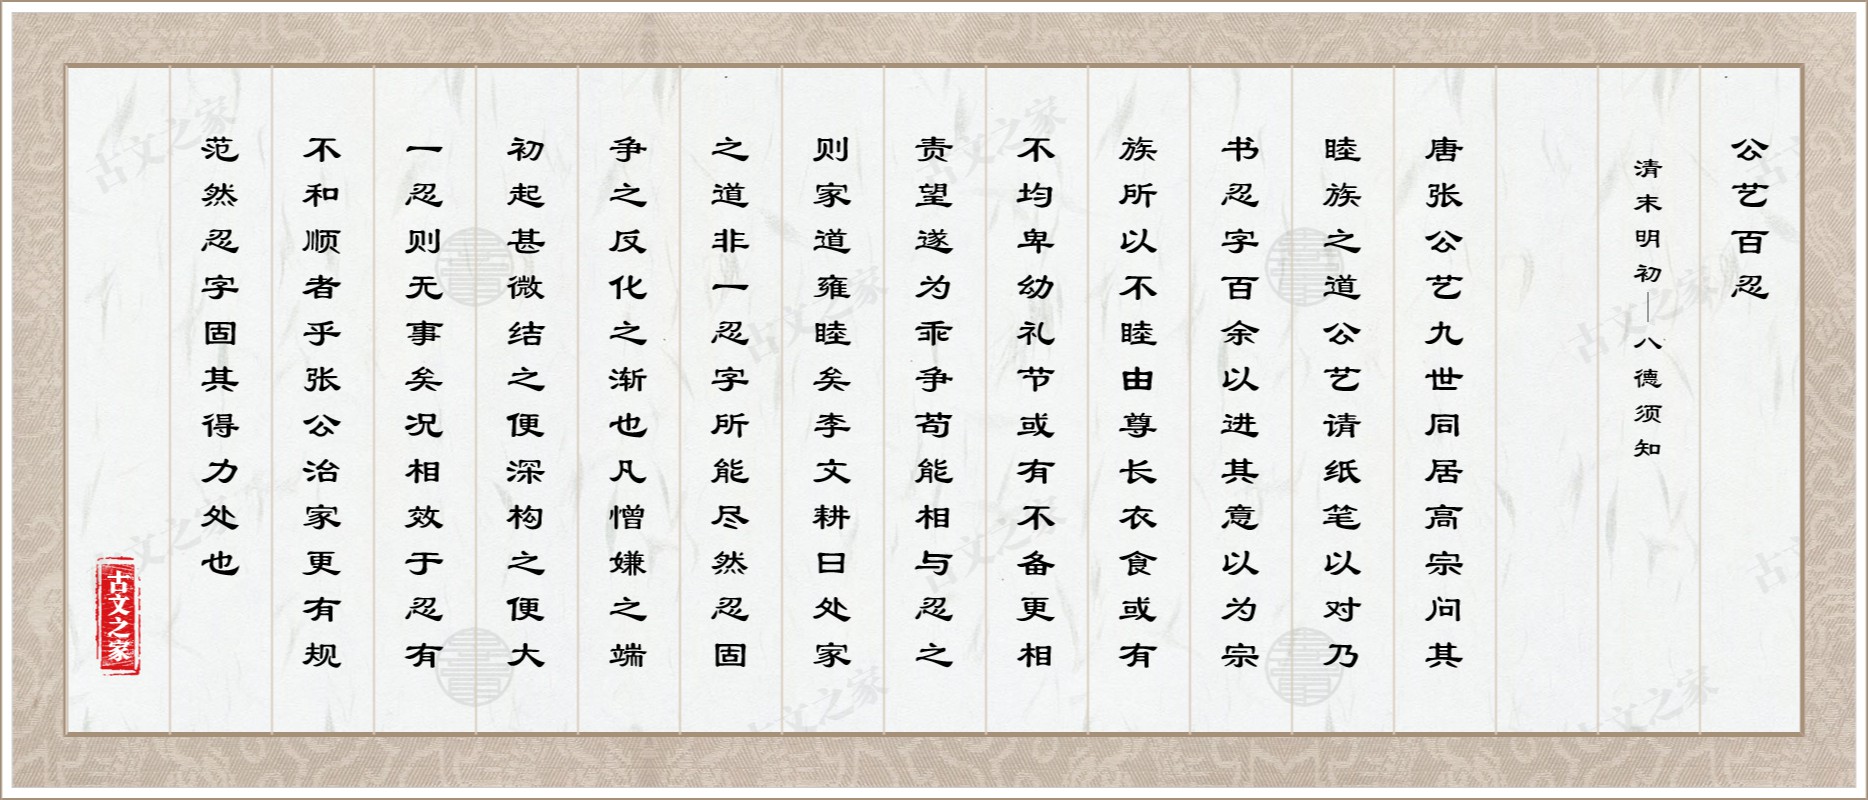 公艺百忍
清末明初—八德须知
唐张公艺九世同居高宗问其
睦族之道公艺请纸笔以对乃
书忍字百余以进其意以为宗
族所以不睦由尊长衣食或有
不均卑幼礼节或有不备更相
责望遂为乖争苟能相与忍之
则家道雍睦矣李文耕曰处家
之道非一忍字所能尽然忍固
争之反化之渐也凡憎嫌之端
初起甚微结之便深构之便大
一忍则无事矣况相效于忍有
不和顺者乎张公治家更有规
范然忍字固其得力处也
古文之家